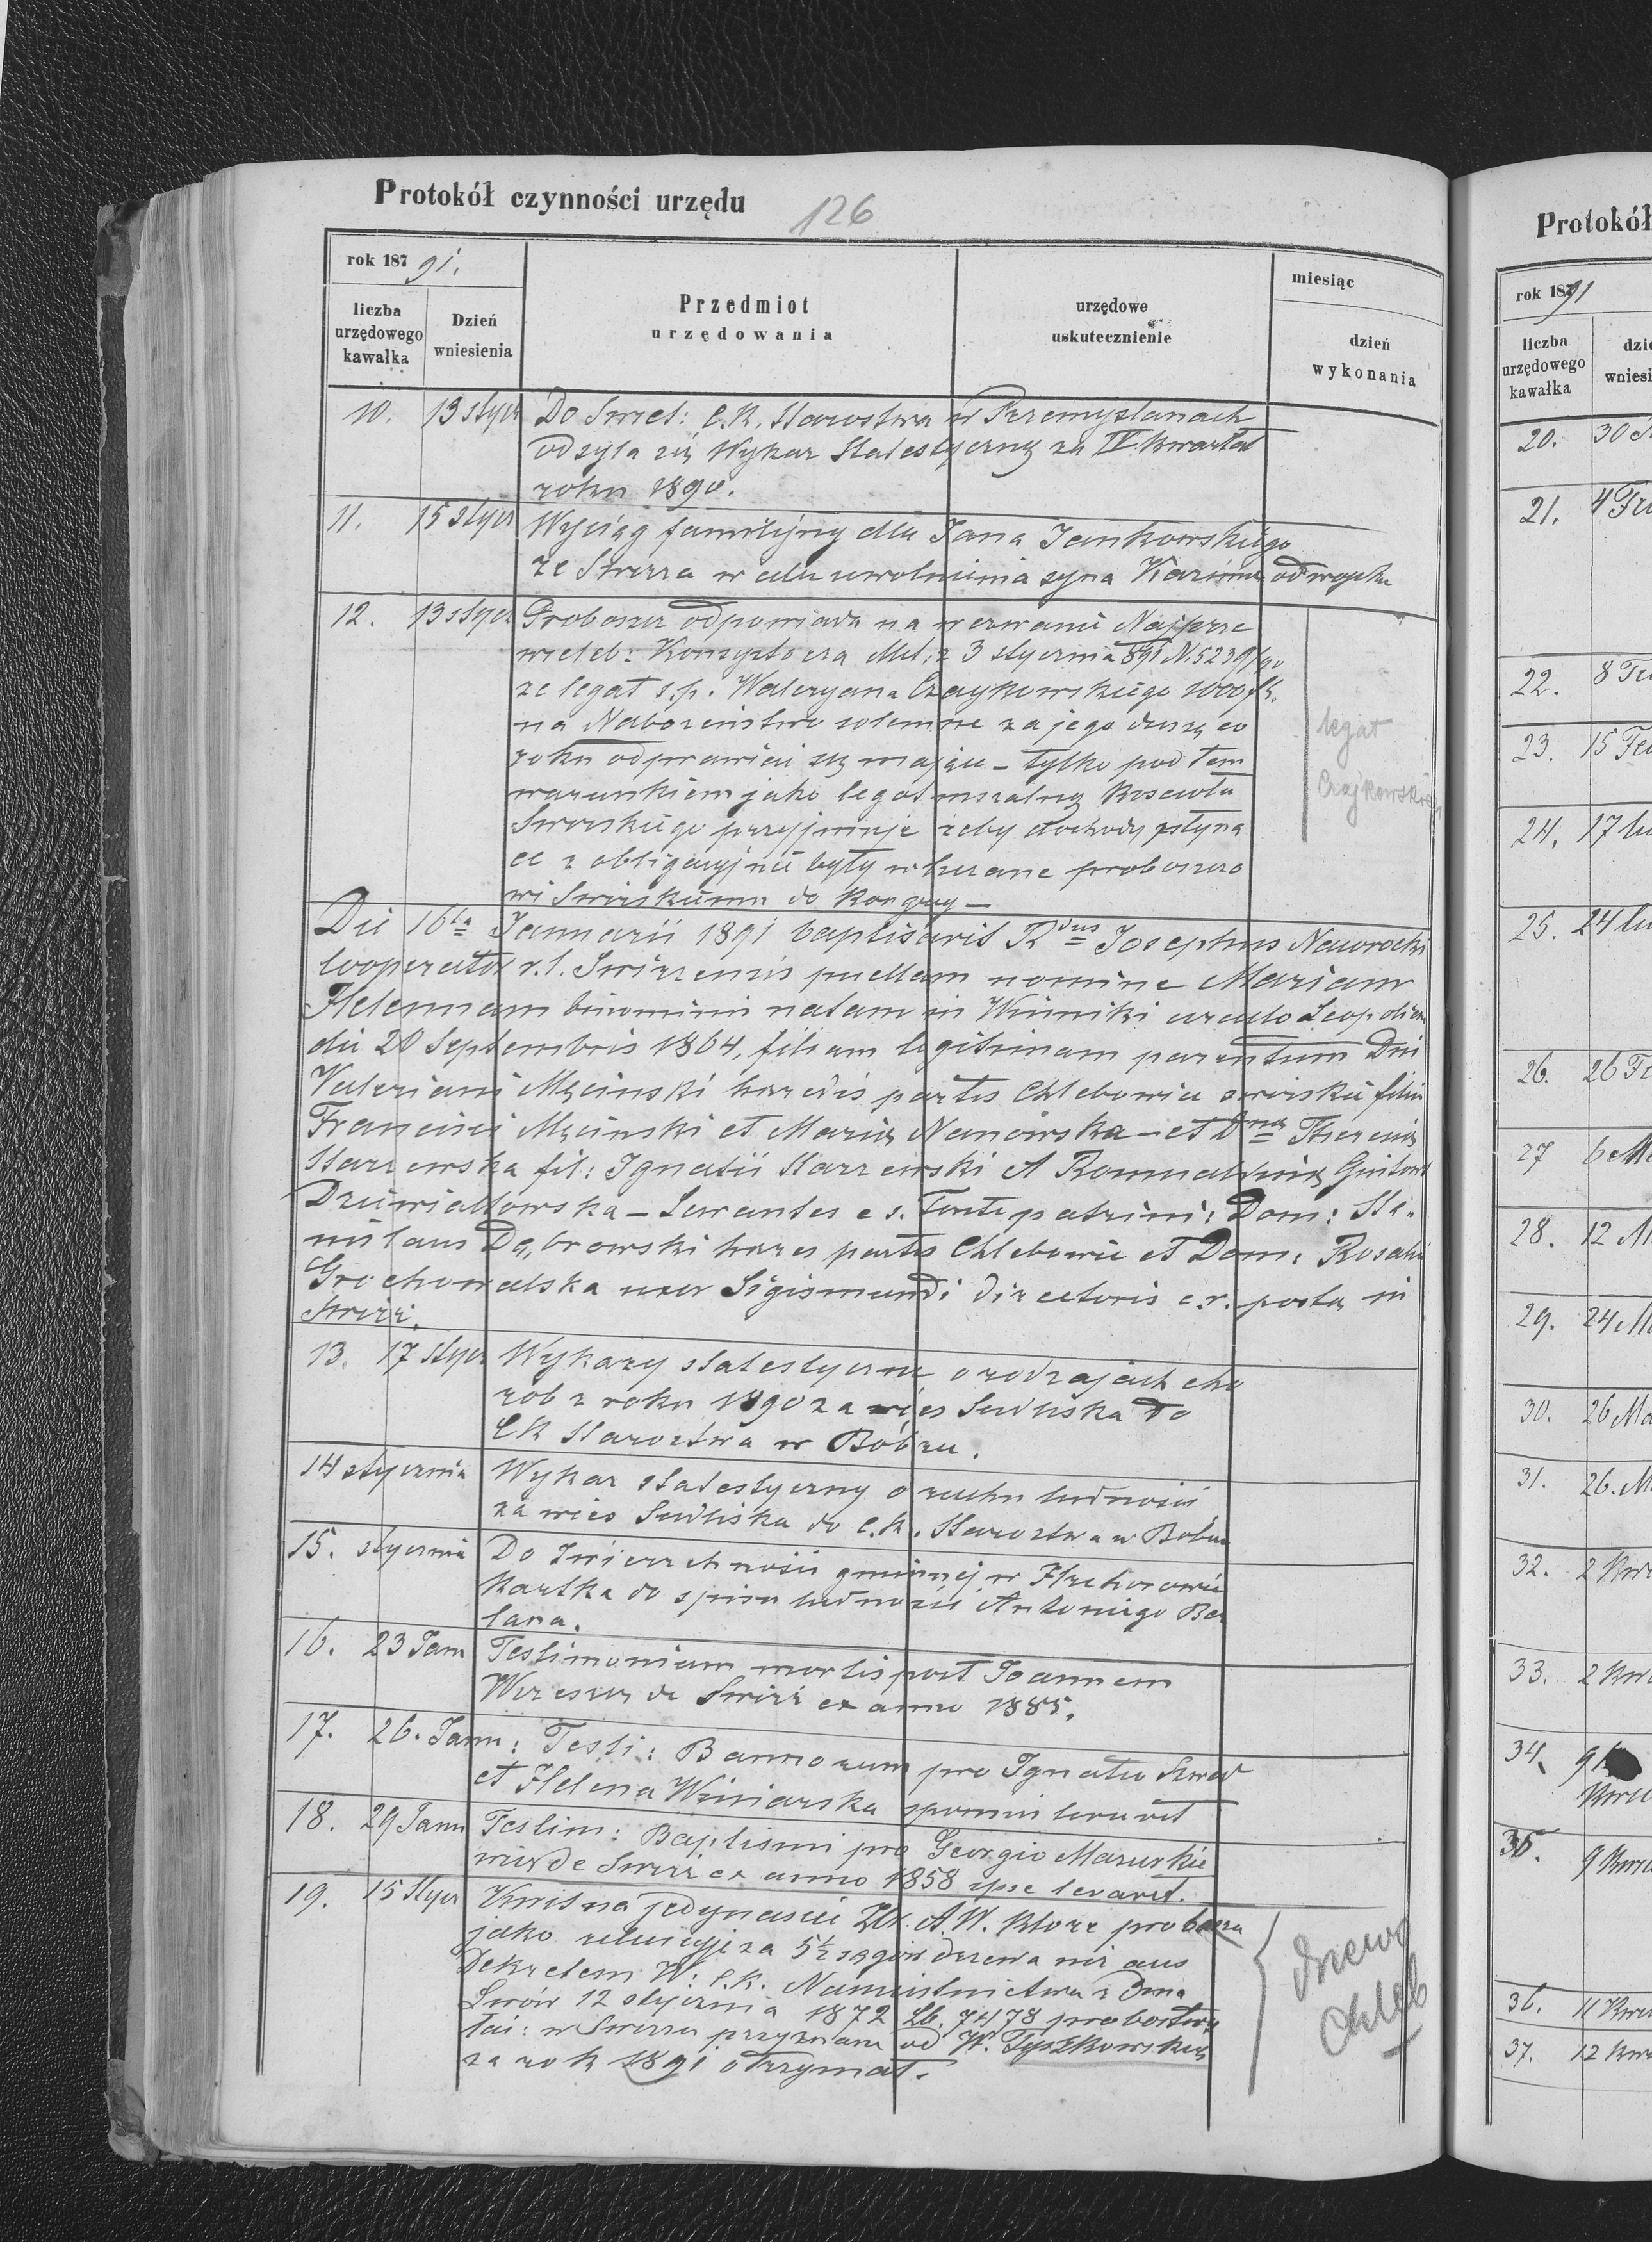 Protokół czynności urzędu 126
rok 18791.
liczba urzędowego kawałka
Dzień wniesienia
Przedmiot urzędowania
urzędowe uskutecznienie
miesiąc
dzień wykonania
10. 13 stycz Do Swiet: C.K. Starostwa w Przemyslanach
odsyła się Wykaz Statestyczny za IV kwartał
roku 1890.
11. 15 stycz Wyciąg familijny dla Jana Jankowskiego
ze Swirza w celu uwolnienia syna Kazimie od wojska
12. 13 stycz Proboszcz odpowiada na wezwanie Najprze
wieleb: Konsystorza Met: z 3 stycznia 891 N. 5239/90
ze legat s.p. Waleryana Czaykowskiego 1000 fl.
na Nabożeństwo solemne za jego duszę co
roku odprawiać się mające – tylko pod tem
warunkiem jako legat mszalny kościoła
Swirskiego przyjmuje żeby dochody płyną
ce z obligacyj nie były wliczane proboszczo
wi Swirskiemu do Kongruy –
legat
Czajkowskieg
Die 16ta Januarii 1891 baptisavit Rdus Josephus Nawrocki
Cooperator r.l. Swirzensis puellam nomine Mariam
Helennam binomini natam in Winniki circulo Leopolien
die 20 Septembris 1864, filiam legitimam parentum Dni
Valeriani Męcinski haredis partis Chlebowice swirskie filii
Francisci Męcinski et Mariæ Nanowska – et Dnæ Theresiæ
Starzewska fil: Ignatii Starzewski et Romualdinæ Gintowt
Dziewiałtowska – Levantes e s. Fonte patrini: Dom: Sta-
nislaus Dąbrowski hares partis Chlebowice et Dom: Rosalia
Grochowalska uxor Sigismundi directoris c.r. postæ in
Swirż.
13. 17 stycz Wykazy statestyczne o rodzajach cho
rób z roku 1890 za wies Siedliska do
CK Starostwa w Bóbrce.
14 stycznia Wykaz statestyczny o ruchu ludności
za wies Siedliska do C.K. Starostwa w Bobrce
15. stycznia Do Zwierzchności gminnej w Hrehorowie
Kartka do spisu ludności Antoniego Ba
lana.
16. 23 Jann Testimonium mortis post Joannem
Wereszcz de Swirż ex anno 1885.
17. 26. Jann: Testi: Bannorum pro Ignatio Szwed
et Helena Winiarska sponsus levavit
18. 29 Jann Testim: Baptismi pro Georgio Mazurkie
wicz de Swirż ex anno 1858 ipse levavit.
19. 15 Stycz Kwit na jedynaście Złr. A.W. które proboszcz
jako relucyję za 5½ sągów drzewa niż aus
Dekretem W: C.K. Namiestnictwa z dnia
Lwów 12 stycznia 1872 Lb. 7478 probostwu
łaci: w Swirzu przyznane od W. Tyszkowskiej
za rok 1891 otrzymał.
drzewo
Chleb
Protokół
rok 18791
liczba urzędowego kawałka
20. 30
21. 4
22. 8
23. 15
24. 17
25. 24
26. 26
27 6
28. 12
29. 24
30. 26
31. 26.
32. 2
33. 2
34. 9
35. 9
36. 11
37. 12